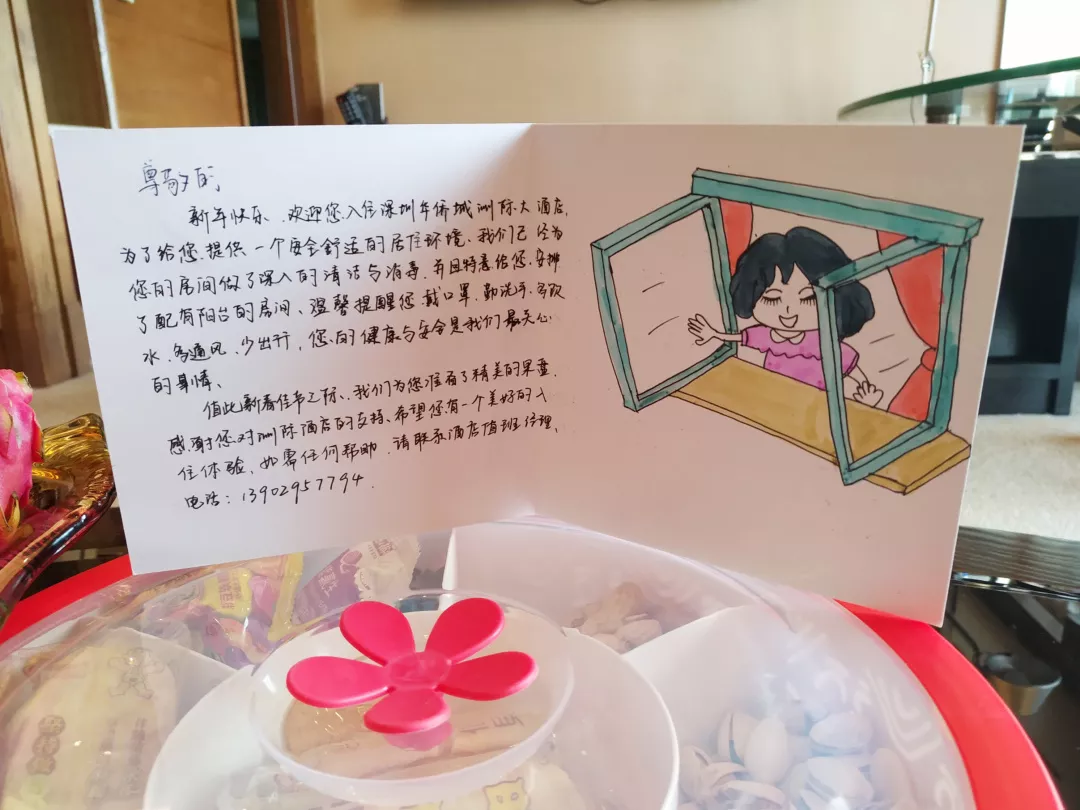 尊敬的
新年快乐、欢迎您入住深圳华侨城洲际大酒店,
为了给您提供一个安全舒适的居住环境、我们已经为
您的房间做了深入的清洁与消毒、并且特意给您安排
了配有阳台的房间、温馨提醒您戴口罩、勤洗手、多饮
水、多通风、少出行,您的健康与安全是我们最关心
的事情、
值此新春佳节之际、我们为您准备了精美的果盘、
感谢您对洲际酒店的支持、希望您有一个美好的入
住体验、如需任何帮助、请联系酒店值班经理、
电话:13902957794.